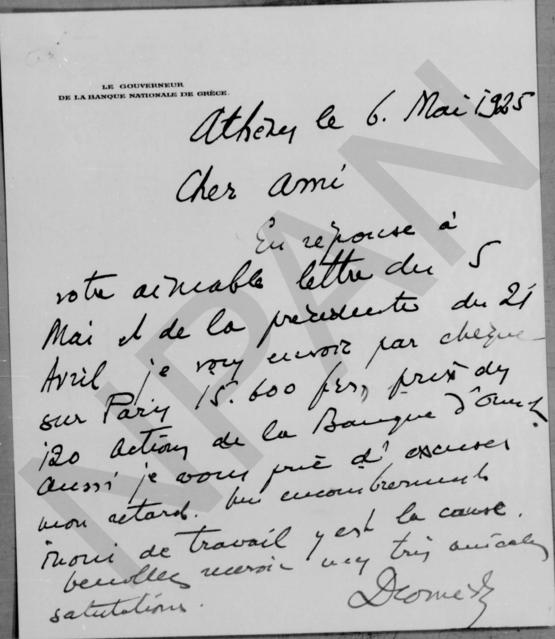 LE GOUVERNEUR
DE LA BANQUE NATIONALE DE GRÈCE.
Athènes le 6. Mai 1925
Cher Ami
En réponse à
votre aimable lettre du 5
Mai et de la précédente du 21
Avril je vous envoie par chèque
sur Paris 15.600 frs, prix des
120 actions de la Banque d'Orient
aussi je vous prie d'excuser
mon retard. Un encombrement
inoui de travail y est la cause.
Veuillez recevoir mes très amicales
salutations.
NPAN